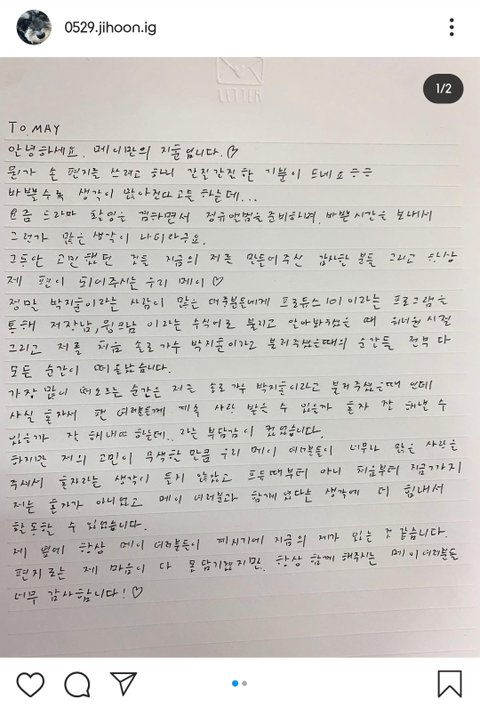 0529.jihoon.ig
1/2
LETTER
TO. MAY
안녕하세요. 메이만의 지훈입니다.♡
뭔가 손 편지를 쓰려고 하니 간질간질한 기분이 드네요ㅎㅎ
바쁠수록 생각이 많아진다고들 하는데...
요즘 드라마 촬영을 겸하면서 정규앨범을 준비하며, 바쁜시간을 보내서
그런가 많은 생각이 나더라구요.
그동안 고민했던 것들 지금의 저를 만들어주신 감사한 분들 그리고 항상
제 편이 되어주시는 우리 메이♡
정말 박지훈이라는 사람이 많은 대중분들에게 프로듀스101 이라는 프로그램을
통해 저장남, 윙크남 이라는 수식어로 불리고 알아봐주셨을 때 워너원 시절
그리고 저를 처음 솔로 가수 박지훈이라고 불러주셨을때의 순간들 전부 다
모든 순간이 떠올랐습니다.
가장 많이 떠오르는 순간은 저를 솔로가수 박지훈이라고 불러주셨을때 인데
사실 혼자서 팬 여러분들께 계속 사랑 받을 수 있을까 혼자 잘 해낼 수
있을까 잘 해내야 하는데..라는 부담감이 컸었습니다.
하지만 저의 고민이 무색할 만큼 우리 메이 여러분들이 너무나 많은 사랑을
주셔서 혼자라는 생각이 들지 않았고 프듀때부터 아니 처음부터 지금까지
저는 혼자가 아니었고 메이 여러분과 함께였다는 생각에 더 힘내서
활동할 수 있었습니다.
제 옆에 항상 메이 여러분들이 계시기에 지금의 제가 있는 것 같습니다.
편지로는 제 마음이 다 못담기겠지만, 항상 함께 해주시는 메이여러분들
너무 감사합니다!♡